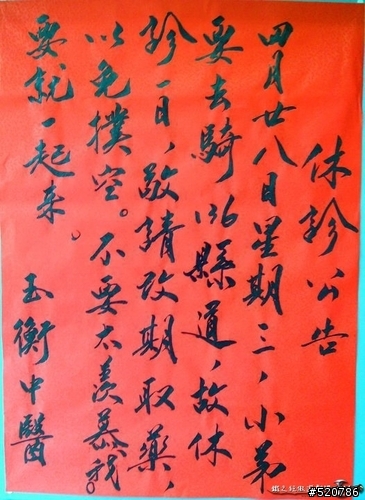 休診公告
四月廿八日星期三，小弟
要去騎136縣道，故休
診一日，敬請改期取藥，
以免撲空。不要太羨慕我。
要就一起来。
玉衡中醫
#520786